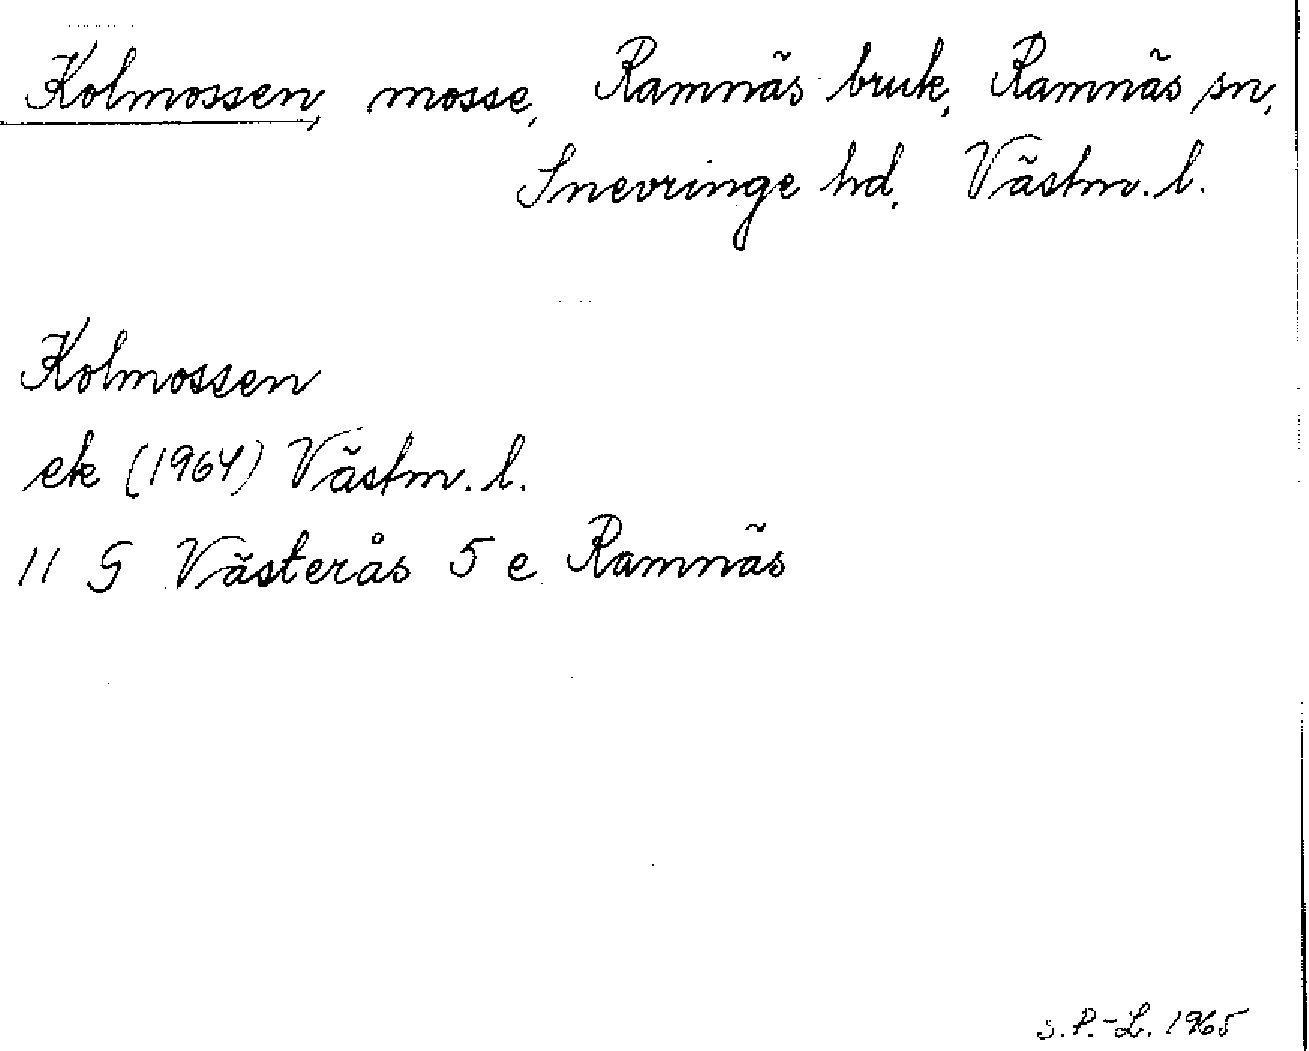 Kolmossen, mosse, Ramnäs bruk, Ramnäs sn,
Snevringe hd, Västm. l.
Kolmossen
ek (1964) Västm. l.
11 G Västerås 5 e Ramnäs
S.P.-L. 1965